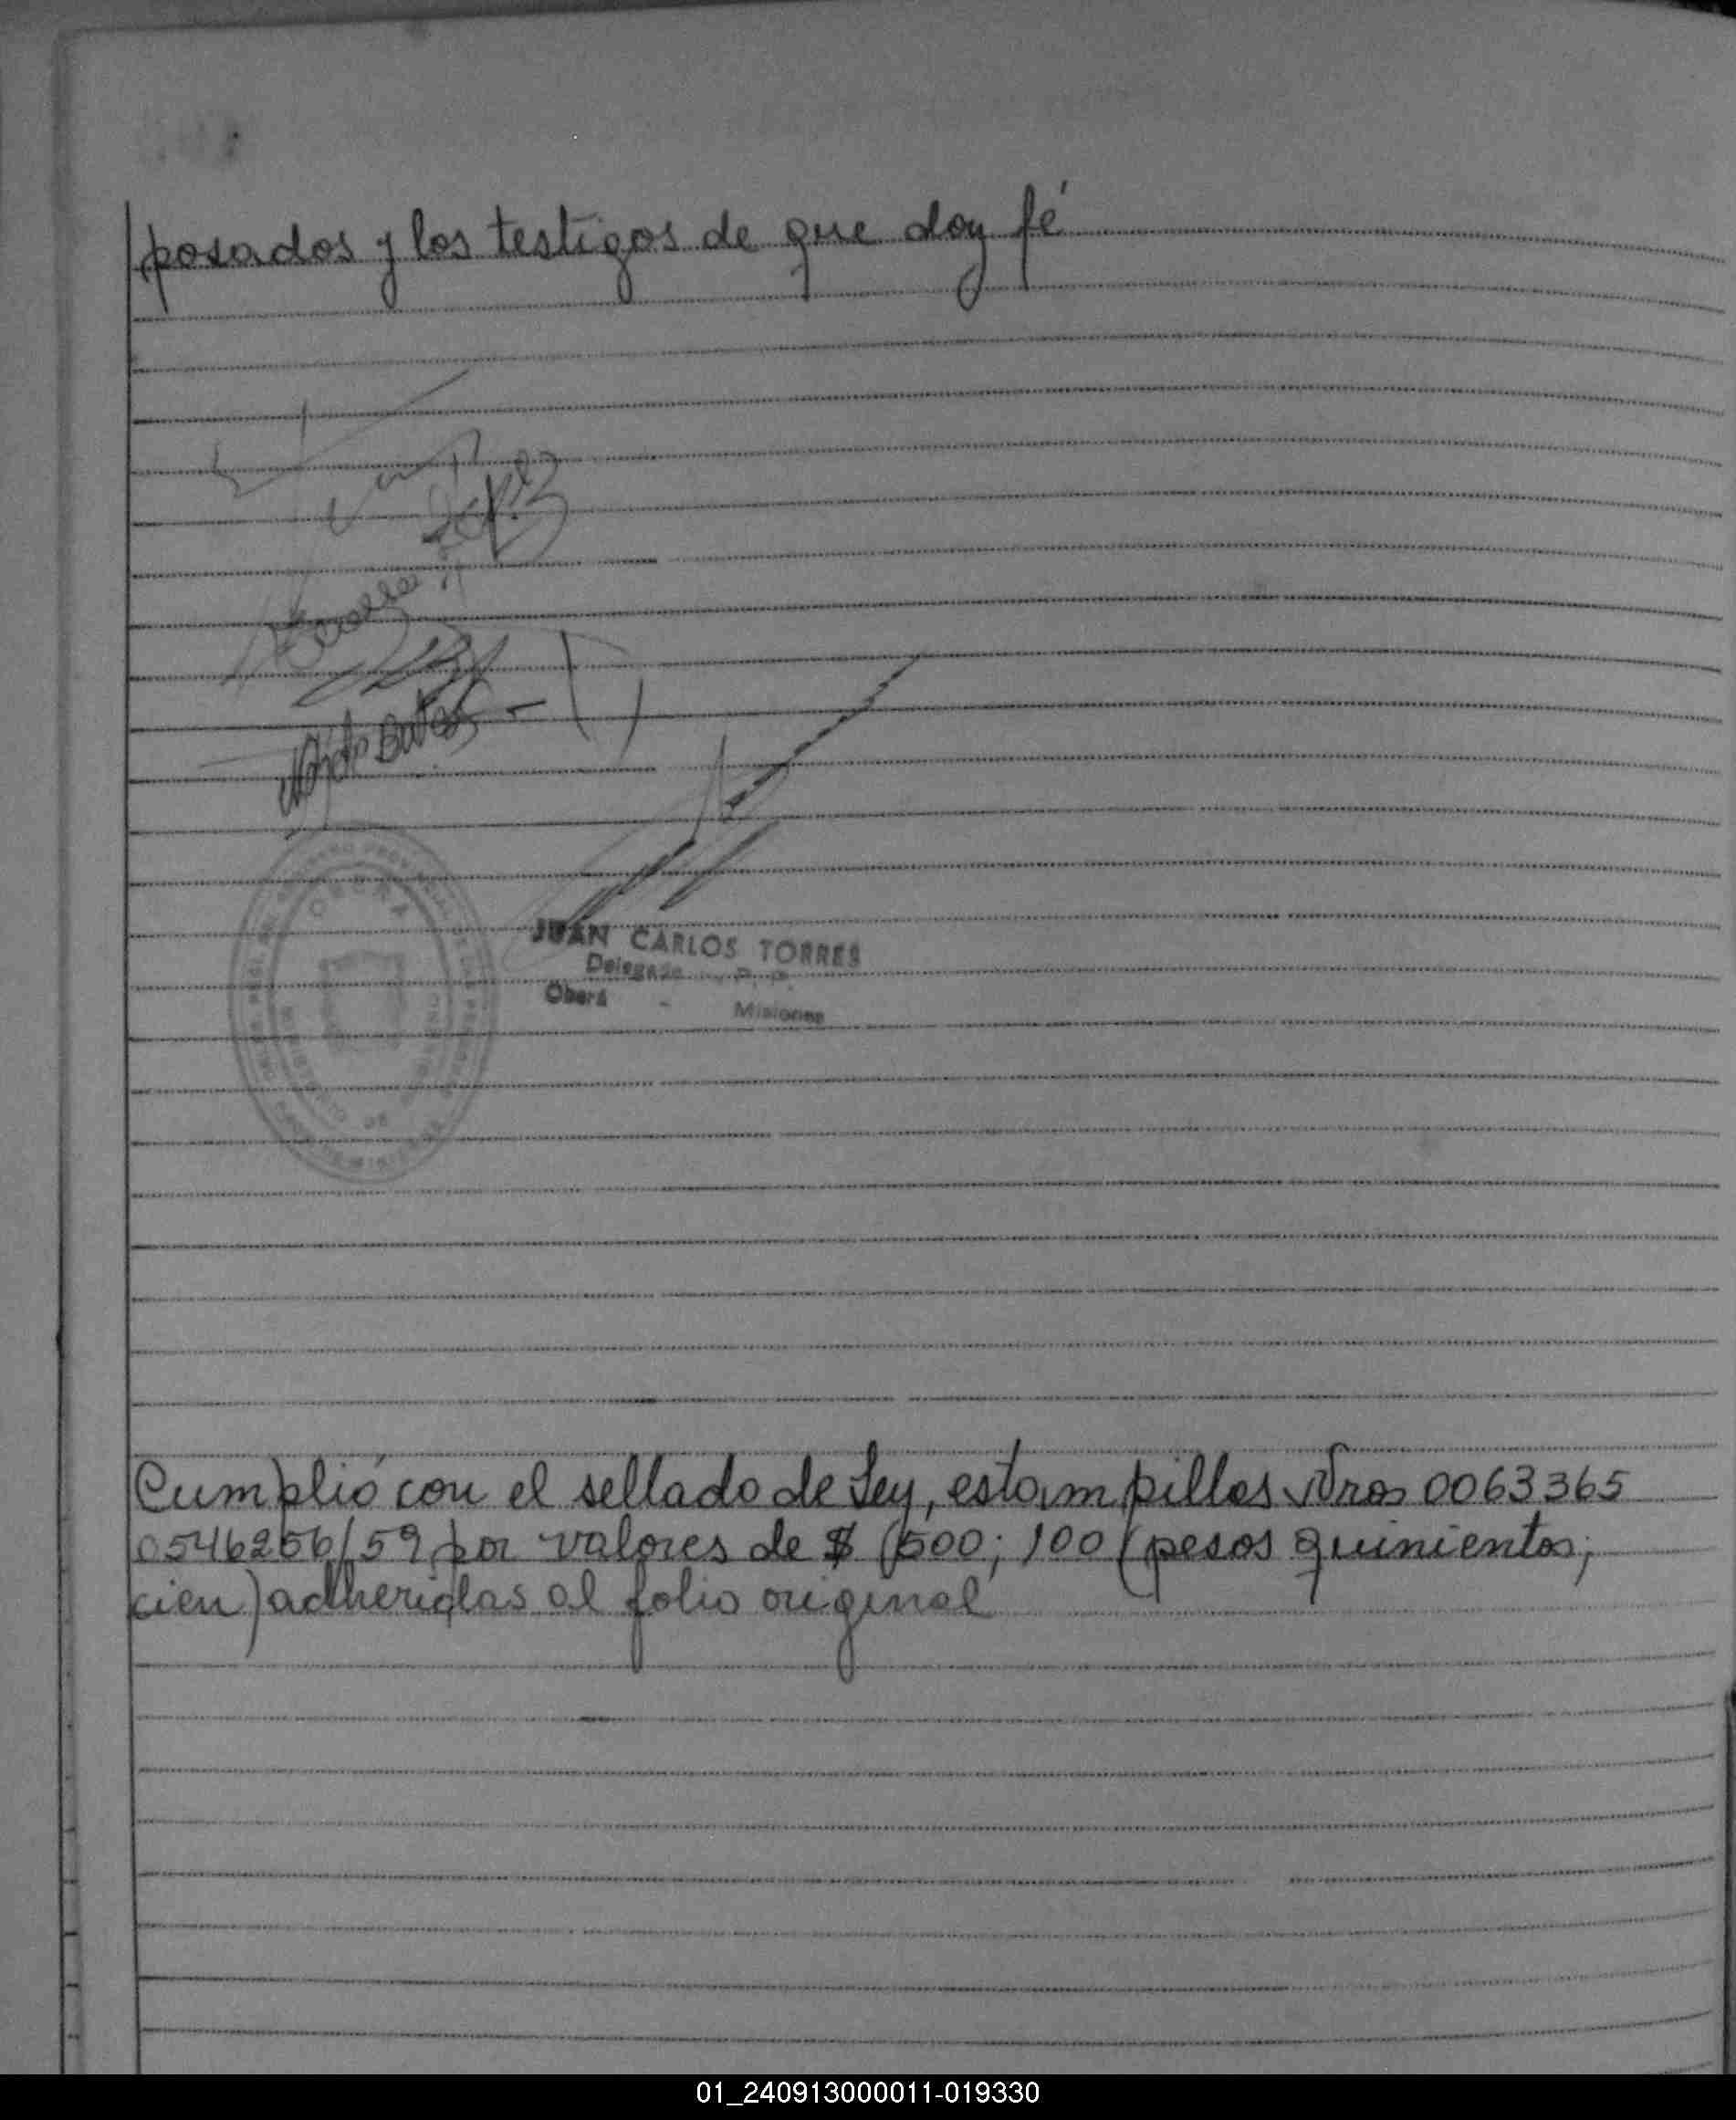 posados y los testigos de que doy fé
OBERA
JUAN CARLOS TORRES
Delegado
Oberá - Misiones
Cumplió con el sellado de Ley, estampillas Nros 0063365
0546256/59 por valores de $ (500; 100 (pesos quinientos;
cien) adheridas al folio original
01_240913000011-019330